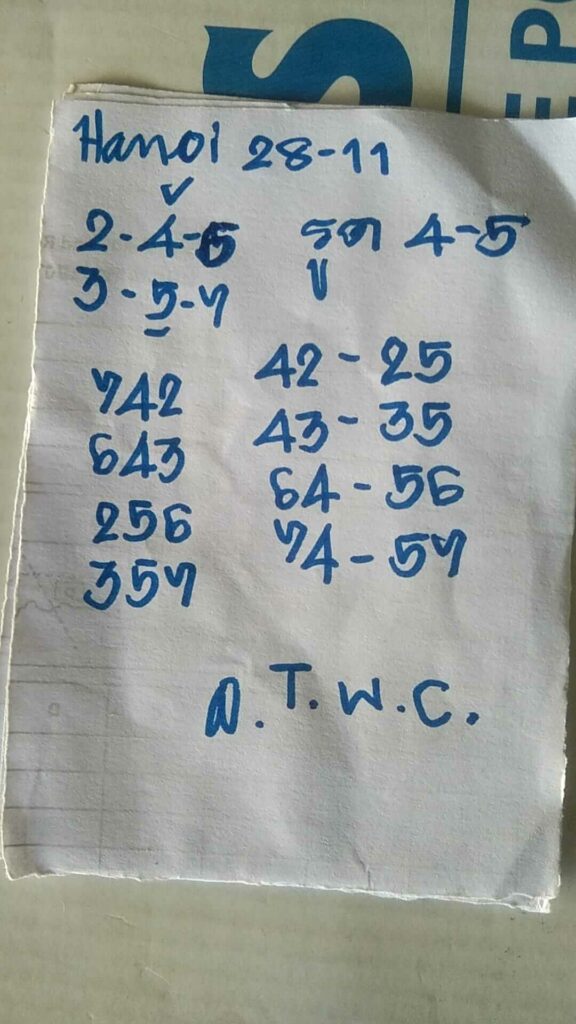 Hanoi 28-11
2-4-6 รูด 4-5
3-5-7
742 42-25
643 43-35
256 64-56
357 74-57
T.W.C.
S